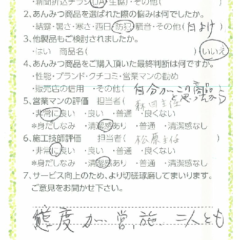 ・新聞折込チラシ
2.あんみつ商品を選ばれた際の悩みは何でしたか。
・結露・寒さ・暑さ・西日・防音・台風・その他(
3.他製品もご検討されましたか。
・はい 商品名( )・いいえ
4.あんみつ商品をご購入頂いた最終判断は何ですか。
・性能・ブランド・クチコミ・営業マンの勧め
・販売店の信用・その他(自分が
5.営業マンの評価 担当者(
*非常に良い ・良い ・普通 ・良くない
*身だしなみ ・大変清潔感あり ・普通 ・清潔感なし
6.施工技師評価 担当者(
*非常に良い ・良い ・普通 ・良くない
*身だしなみ ・清潔感あり ・普通 ・清潔感なし
7.サービス向上のため、より切磋琢磨してまいります。
ご意見をお聞かせ下さい。
態度が 営、施 二人とも